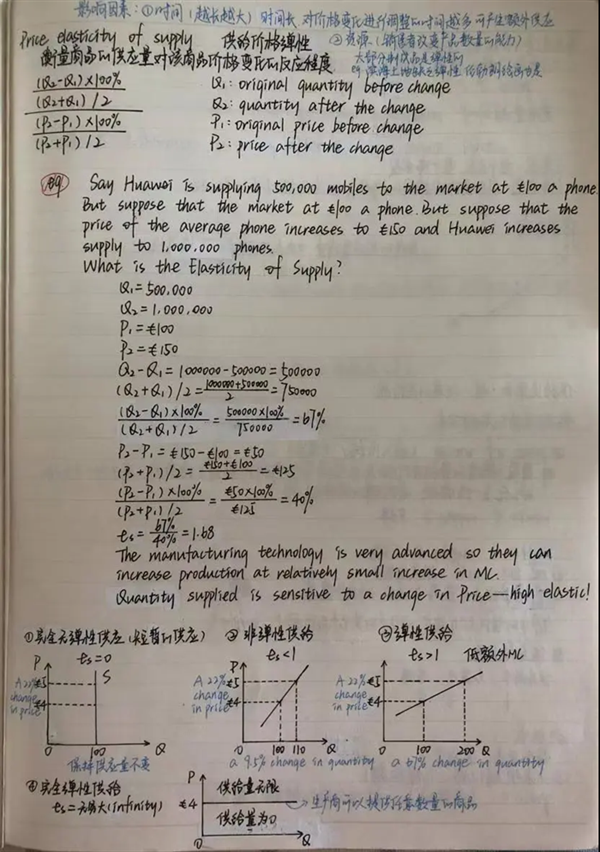 影响因素:①时间(越长越大) 时间长,对价格变化进行调整的时间越多,可产生额外供应
Price elasticity of supply 供给价格弹性
②资源(销售者改变产品数量的能力)
衡量商品的供应量对该商品价格变化的反应程度
大部分制成品是弹性的
(Q₂-Q₁)×100%
(Q₂+Q₁)/2
(P₂-P₁)×100%
(P₂+P₁)/2
Q₁: original quantity before change
Q₂: quantity after the change
P₁: original price before change
P₂: price after the change
Say Huawei is supplying 500,000 mobiles to the market at €100 a phone.
But suppose that the market at €100 a phone. But suppose that the
price of the average phone increases to €150 and Huawei increases
supply to 1,000,000 phones.
What is the Elasticity of Supply?
Q₁=500,000
Q₂=1,000,000
P₁=€100
P₂=€150
Q₂-Q₁=1000000-500000=500000
(Q₂+Q₁)/2=(1000000+500000)/2=750000
(Q₂-Q₁)×100%/(Q₂+Q₁)/2=500000×100%/750000=67%
P₂-P₁=€150-€100=€50
(P₂+P₁)/2=(€150+€100)/2=€125
(P₂-P₁)×100%/(P₂+P₁)/2=€50×100%/€125=40%
Es=67%/40%=1.68
The manufacturing technology is very advanced so they can
increase production at relatively small increase in MC.
Quantity supplied is sensitive to a change in Price—high elastic!
①完全无弹性供应(短暂的供应)
Es=0
P
A 22% change in price
€5
€4
S
0 100 Q
保持供应量不变
②非弹性供给
Es<1
P
A 22% change in price
€5
€4
0 100 110 Q
a 9.5% change in quantity
③弹性供给
Es>1 低额外MC
P
A 22% change in price
€5
€4
0 100 200 Q
a 67% change in quantity
④完全弹性供给
Es=无穷大(infinity)
P
供给量无限
€4
供给量为0
0 Q
生产商可以提供任意数量的商品